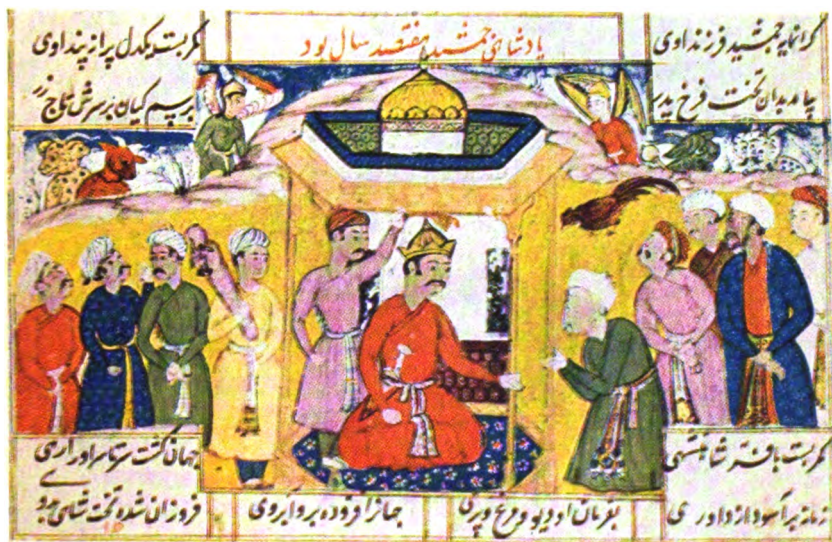 پادشاهی جمشید هفتصد سال بود
گرانمایه جمشید فرزند اوی
کمر بست یکدل پر از پند اوی
برآمد بدان تخت فرخ پدر
برسم کیان بر سرش تاج زر
کمر بست با فر شاهنشهی
جهان گشت سرتاسر او را رهی
زمانه برآسود از داوری
بفرمان او دیو و مرغ و پری
جهانرا فزوده برو آبروی
فروزان شده تخت شاهی بدو